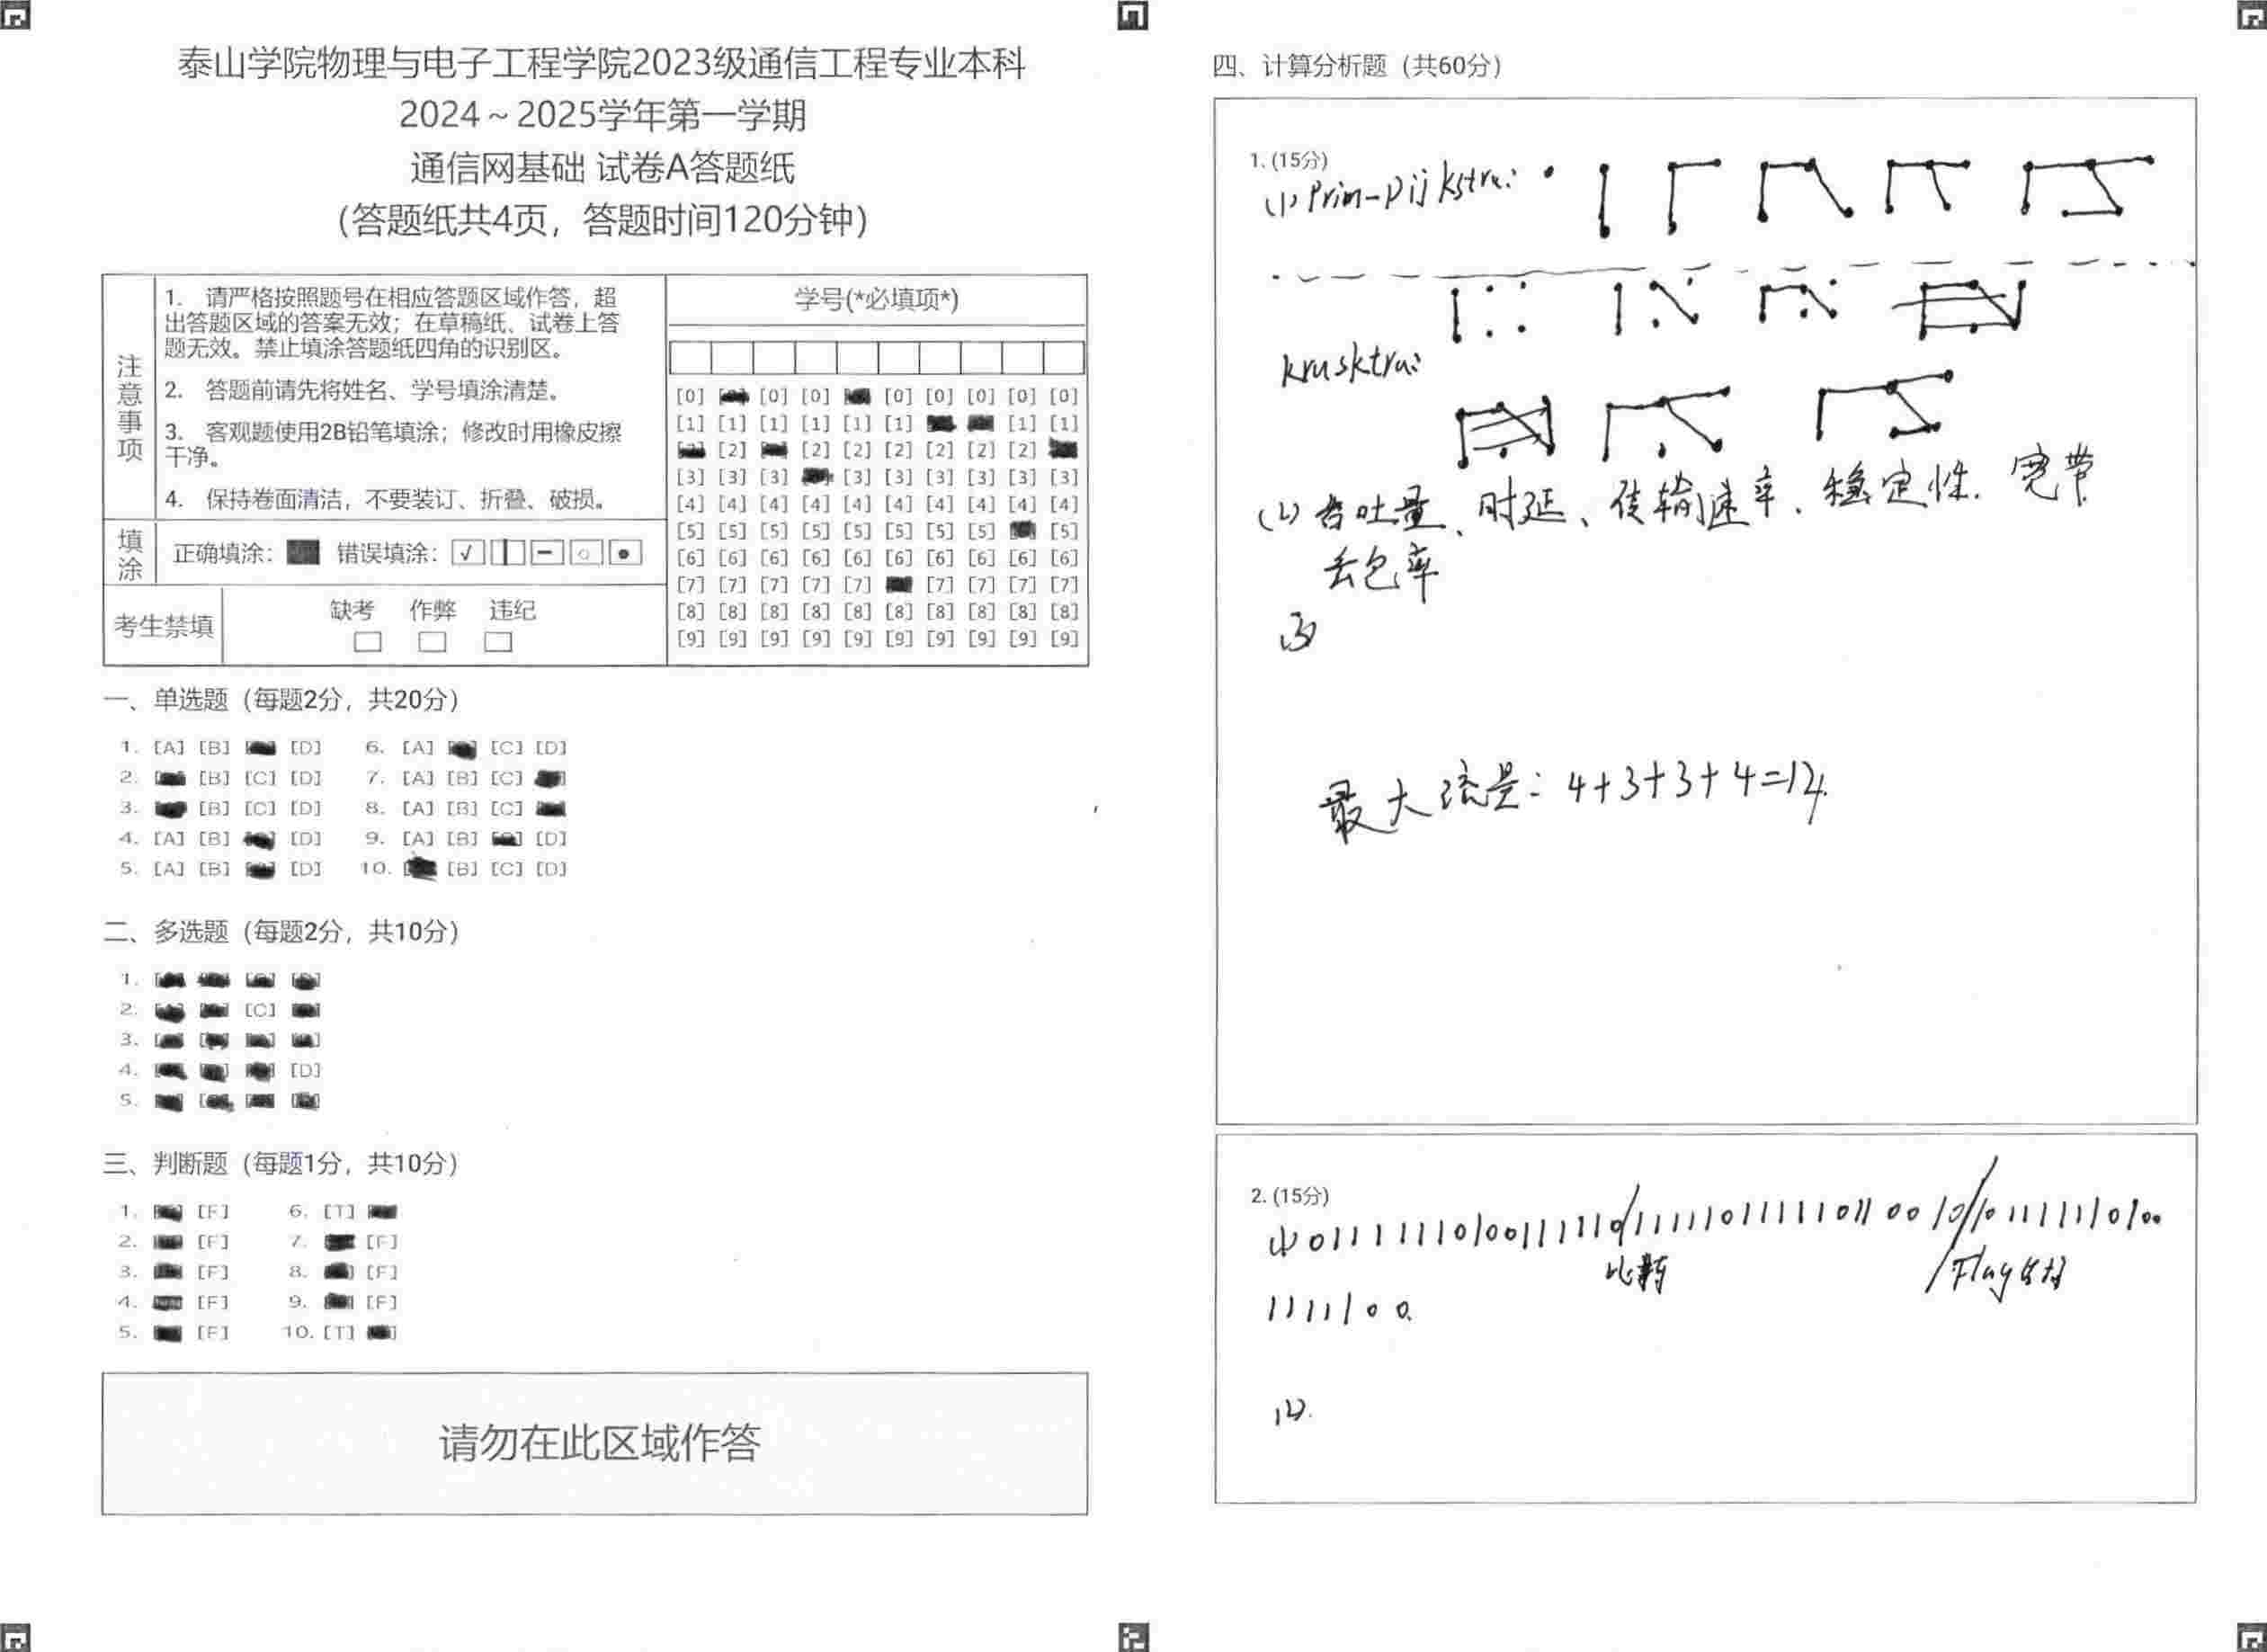 泰山学院物理与电子工程学院2023级通信工程专业本科
2024～2025学年第一学期
通信网基础 试卷A答题纸
（答题纸共4页，答题时间120分钟）
注意事项
1. 请严格按照题号在相应答题区域作答，超
出答题区域的答案无效；在草稿纸、试卷上答
题无效。禁止填涂答题纸四角的识别区。
2. 答题前请先将姓名、学号填涂清楚。
3. 客观题使用2B铅笔填涂；修改时用橡皮擦
干净。
4. 保持卷面清洁，不要装订、折叠、破损。
填涂
正确填涂： 错误填涂：
考生禁填
缺考 作弊 违纪
学号(*必填项*)
[0] [0] [0] [0] [0] [0] [0] [0]
[1] [1] [1] [1] [1] [1] [1] [1]
[2] [2] [2] [2] [2] [2] [2]
[3] [3] [3] [3] [3] [3] [3] [3] [3]
[4] [4] [4] [4] [4] [4] [4] [4] [4] [4]
[5] [5] [5] [5] [5] [5] [5] [5] [5]
[6] [6] [6] [6] [6] [6] [6] [6] [6] [6]
[7] [7] [7] [7] [7] [7] [7] [7] [7]
[8] [8] [8] [8] [8] [8] [8] [8] [8] [8]
[9] [9] [9] [9] [9] [9] [9] [9] [9] [9]
一、单选题（每题2分，共20分）
1. [A] [B] [D] 6. [A] [C] [D]
2. [B] [C] [D] 7. [A] [B] [C]
3. [B] [C] [D] 8. [A] [B] [C]
4. [A] [B] [D] 9. [A] [B] [D]
5. [A] [B] [D] 10. [B] [C] [D]
二、多选题（每题2分，共10分）
1.
2. [C]
3.
4. [D]
5.
三、判断题（每题1分，共10分）
1. [F] 6. [T]
2. [F] 7. [F]
3. [F] 8. [F]
4. [F] 9. [F]
5. [F] 10. [T]
请勿在此区域作答
四、计算分析题（共60分）
1. (15分)
(1) Prim-Dijkstra:
krusktra:
(2) 吞吐量、时延、传输速率、稳定性、宽带
丢包率
(3)
最大流量：4+3+3+4=14.
2. (15分)
比较
1111100.
(2).